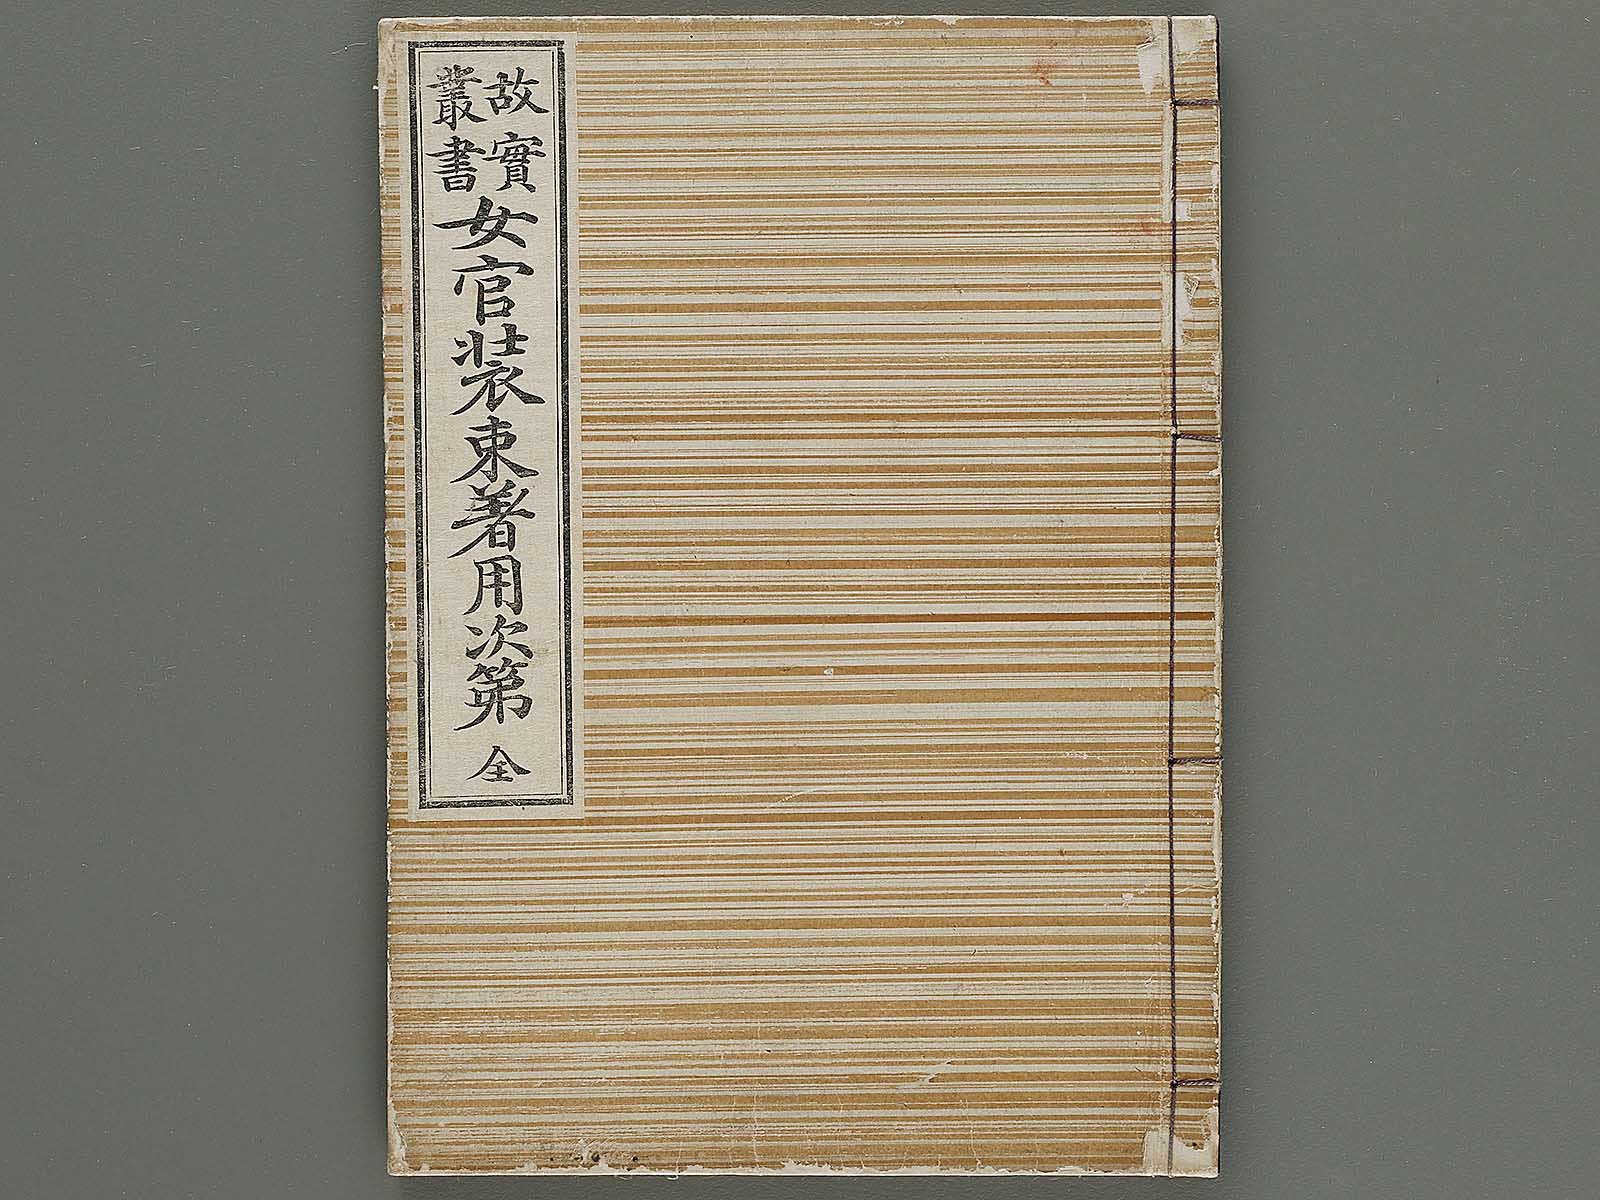 故實
叢書
女官装束著用次第
全